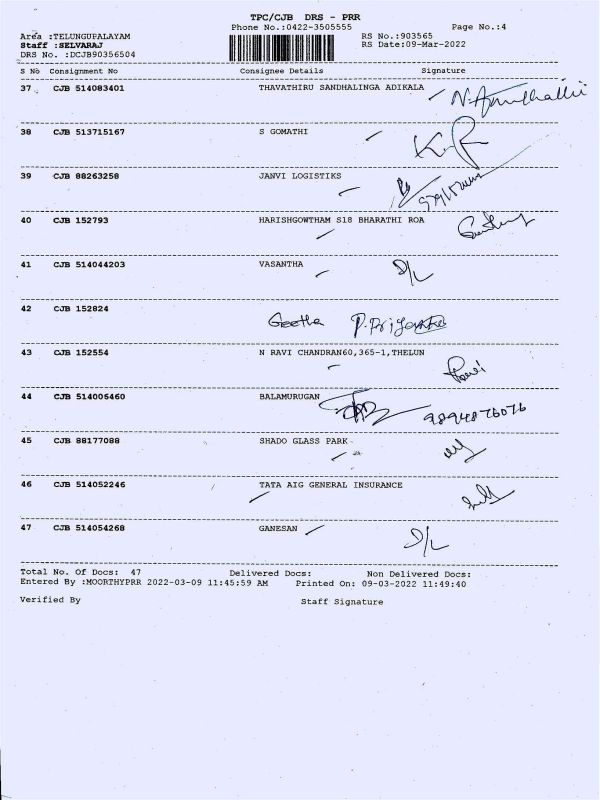 TPC/CJB DRS - PRR
Phone No.:0422-3505555 Page No.:4
Area :TELUNGUPALAYAM RS No.:903565
Staff :SELVARAJ RS Date:09-Mar-2022
DRS No. :DCJB90356504
S No Consignment No Consignee Details Signature
37 CJB 514083401 THAVATHIRU SANDHALINGA ADIKALA
38 CJB 513715167 S GOMATHI
39 CJB 88263258 JANVI LOGISTIKS
40 CJB 152793 HARISHGOWTHAM S18 BHARATHI ROA
41 CJB 514044203 VASANTHA D/L
42 CJB 152824
Geetha P.Priyanka
43 CJB 152554 N RAVI CHANDRAN60,365-1,THELUN
Ravi
44 CJB 514006460 BALAMURUGAN
9894876076
45 CJB 88177088 SHADO GLASS PARK
46 CJB 514052246 TATA AIG GENERAL INSURANCE
47 CJB 514054268 GANESAN D/L
Total No. Of Docs: 47 Delivered Docs: Non Delivered Docs:
Entered By :MOORTHYPRR 2022-03-09 11:45:59 AM Printed On: 09-03-2022 11:49:40
Verified By Staff Signature